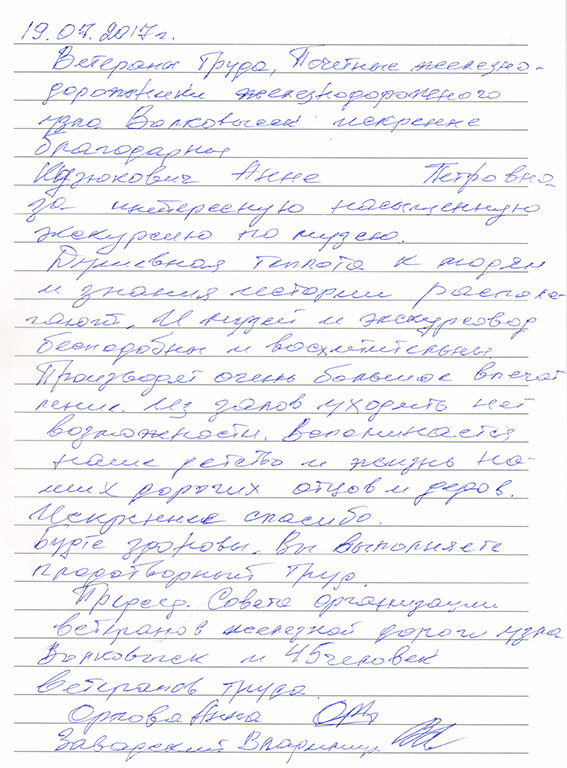 19.07.2017г.
Ветераны Труда, Почетные железно-
дорожники железнодорожного
узла Волковыск искренне
благодарны
Анне Петровне
за интересную насыщенную
экскурсию по музею.
Душевная теплота к людям
и знания истории распола-
гают. И музей и экскурсовод
бесподобны и восхитительны
Производят очень большое впечат
ление. Из залов уходить нет
возможности. Вспоминается
наше детство и жизнь на-
ших дорогих отцов и дедов.
Искреннее спасибо.
Будте здоровы. Вы выполняете
плодотворный труд.
Председ. Совета организации
ветеранов железной дороги узла
Волковыск и 45 человек
Ветеранов труда.
Орлова Анна
Заводский Владимир